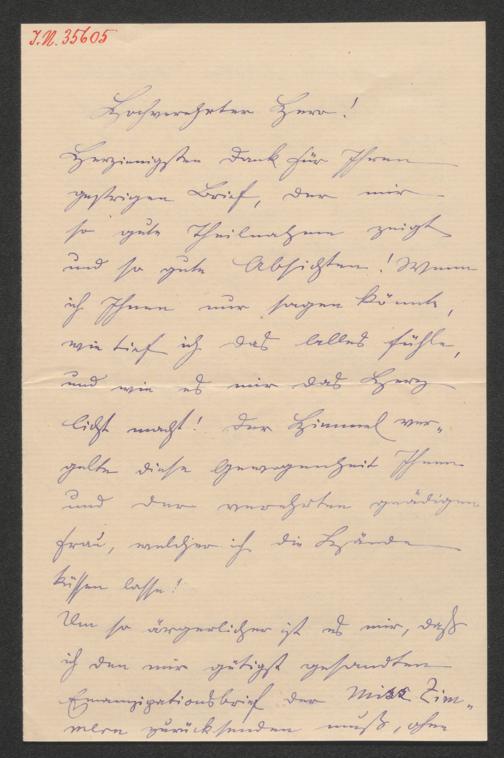 I.N. 35605
Hochverehrter Herr!
Herzinnigsten Dank für Ihren
gestrigen Brief, der mir
so gute Theilnahme zeigt
und so gute Absichten! Wenn
ich Ihnen nur sagen könnte,
wie tief ich das Alles fühle,
und wie es mir das Herz
licht macht! Der Himmel ver-
gelte diese Gewogenheit Ihnen
und der verehrten gnädigen
Frau, welcher ich die Hände
küssen lasse!
Um so ärgerlicher ist es mir, daß
ich den mir gütigst gesandten
Emanzipationsbrief der Miss Zim-
mern zurücksenden muß, ohne